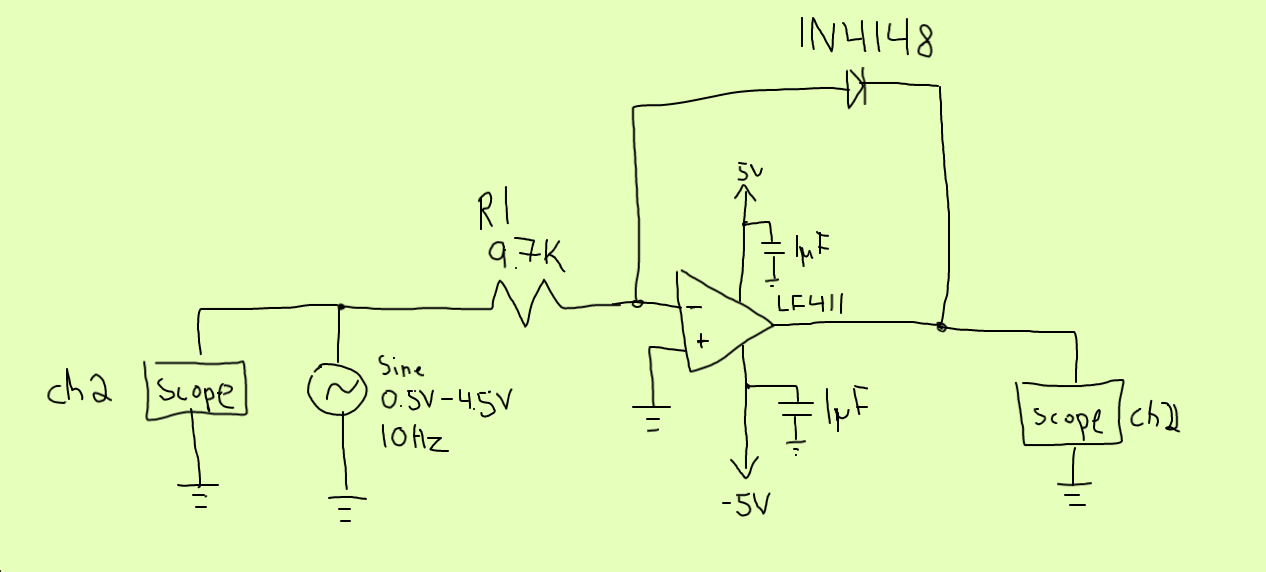 1N4148
5V
R1
9.7K
1µF
LF411
-
+
ch2
Scope
Sine
0.5V-4.5V
10Hz
1µF
Scope
-5V